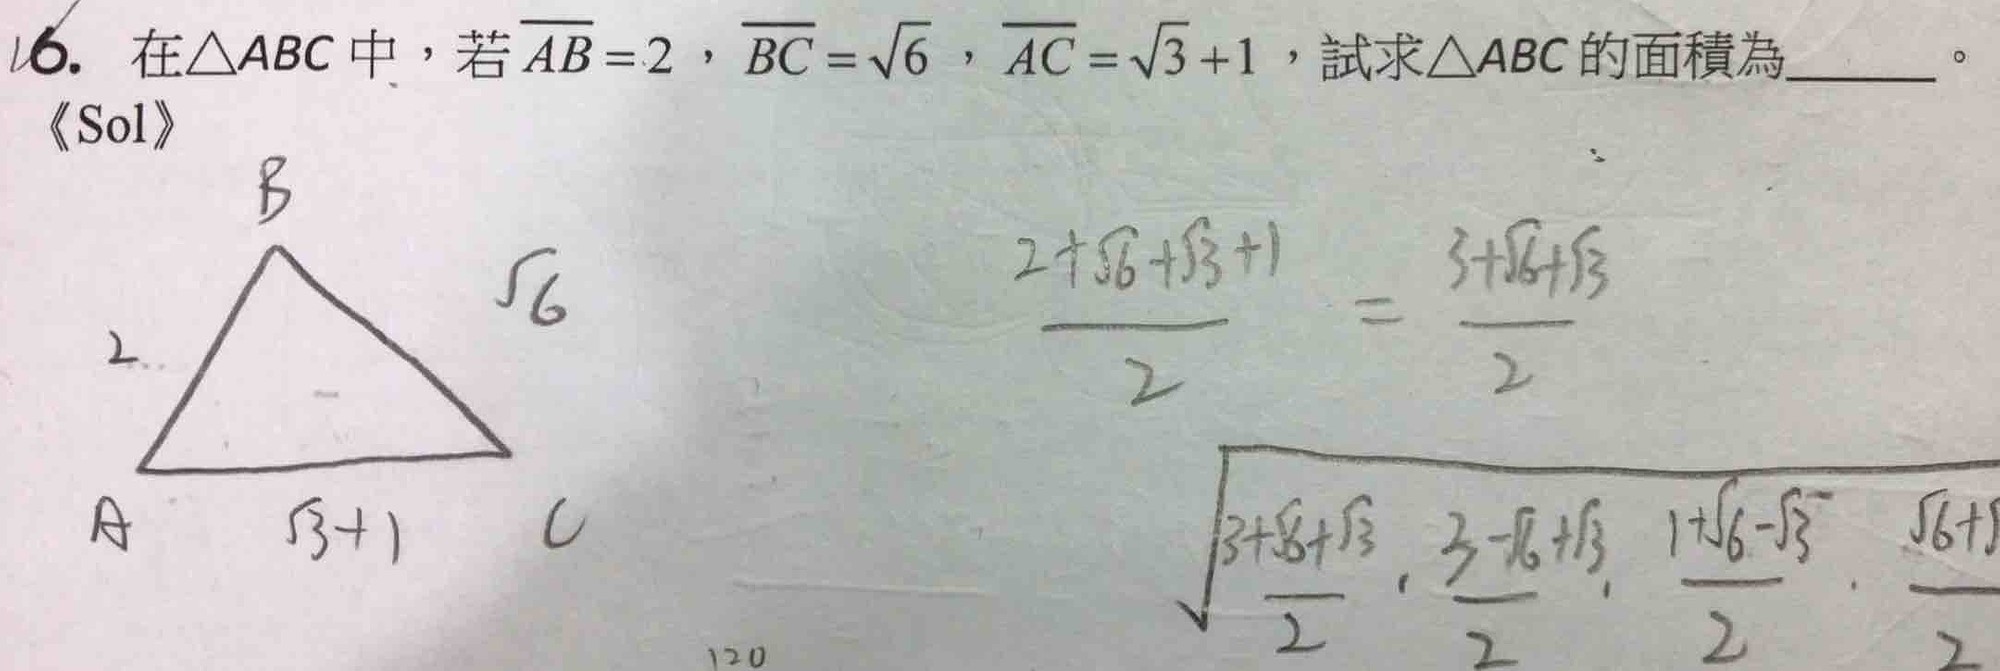 16. 在△ABC 中，若 \overline{AB} = 2 ， \overline{BC} = √6 ， \overline{AC} = √3 + 1 ，試求△ABC 的面積為______。
《Sol》
B
√6
2
A
√3+1
C
(2+√6+√3+1)/2 = (3+√6+√3)/2
√((3+√6+√3)/2 · (3-√6+√3)/2 · (1+√6-√3)/2 · (√6+√)/2
120